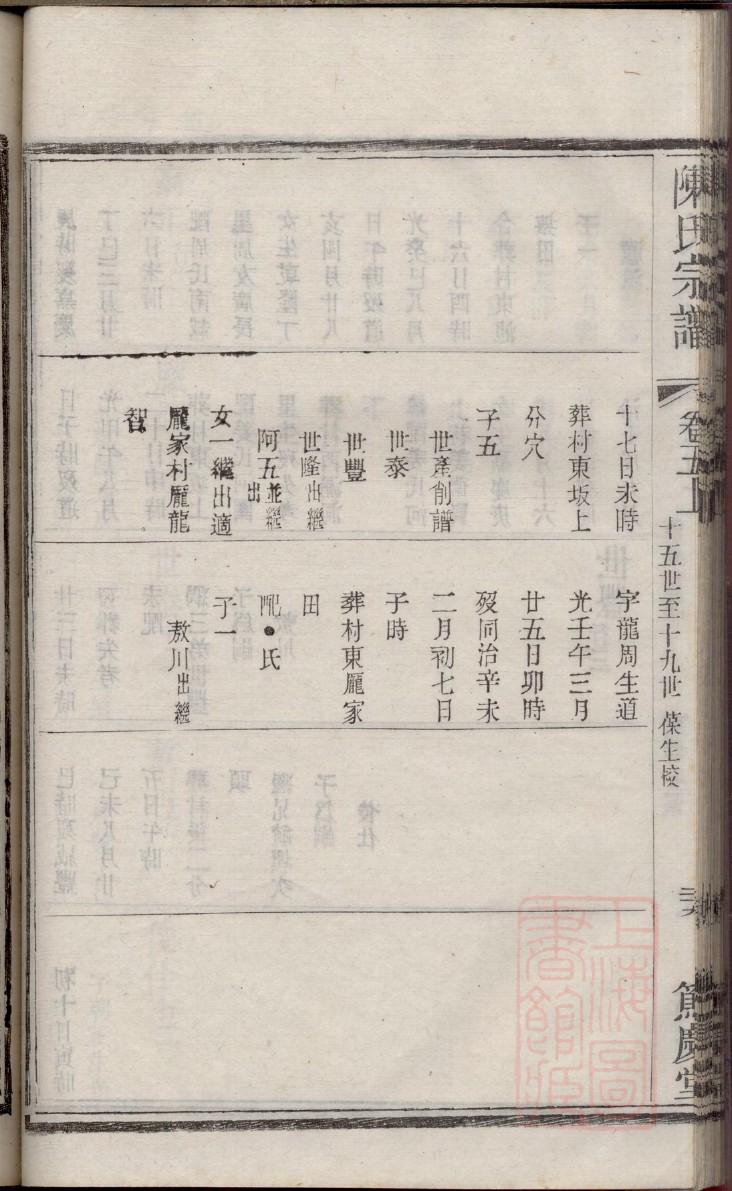 陳氏宗譜
卷五上
十五世至十九世 葆生校
篤慶堂
十七日未時
葬村東坂上
分穴
子五
世產削譜
世泰
世豐
世隆出繼
阿五並繼出
女一繼出適
龎家村龎龍
智
字龍周生道
光壬午三月
廿五日卯時
歿同治辛未
二月初七日
子時
葬村東龎家
田
配●氏
子一
敖川出繼
上海圖
書館藏